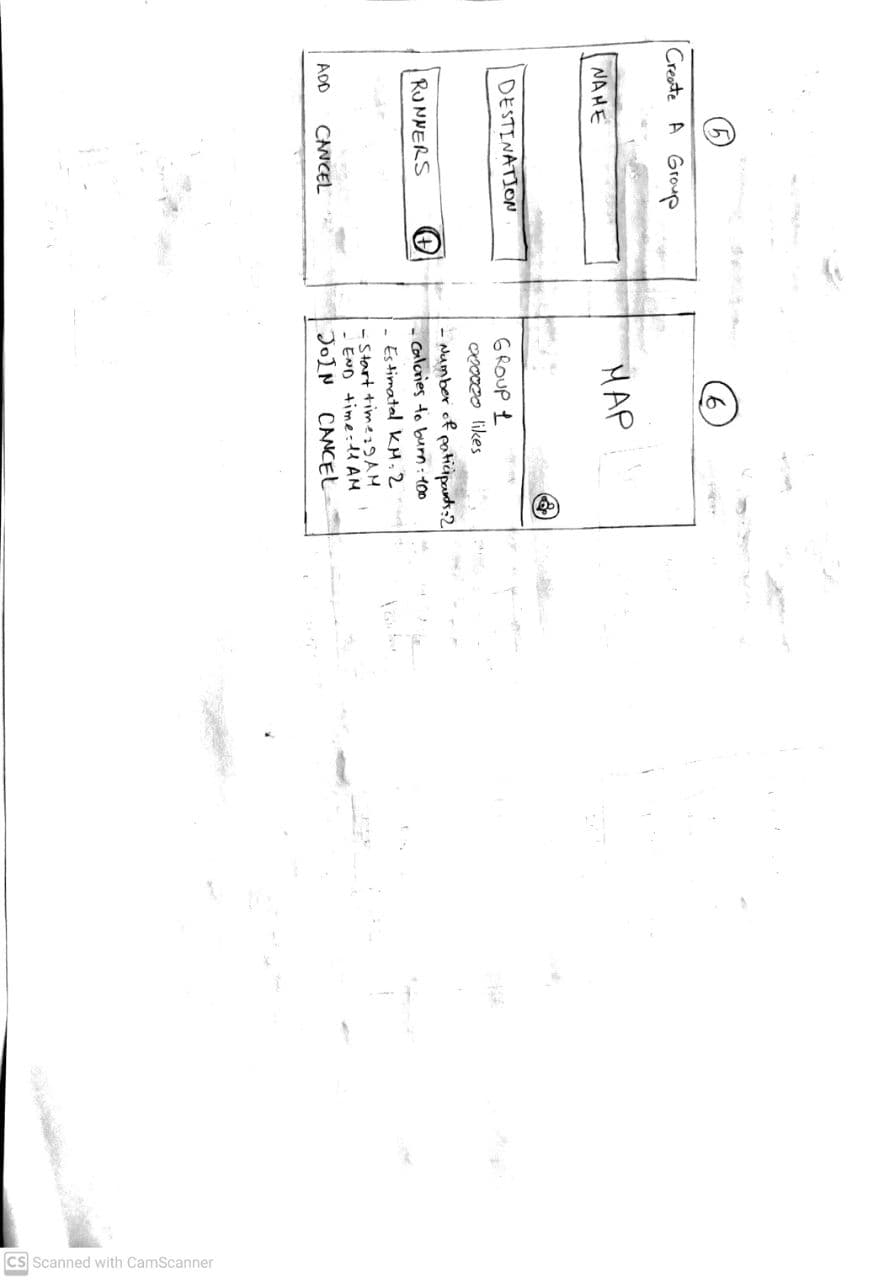 5
Create A Group
NAME
DESTINATION
RUNNERS +
ADD CANCEL
6
MAP
GROUP 1
likes
- Number of paticipants:2
- Calories to burn:100
- Estimated KM:2
- Start time:9AM
- END time:11 AM
JOIN CANCEL
CS Scanned with CamScanner